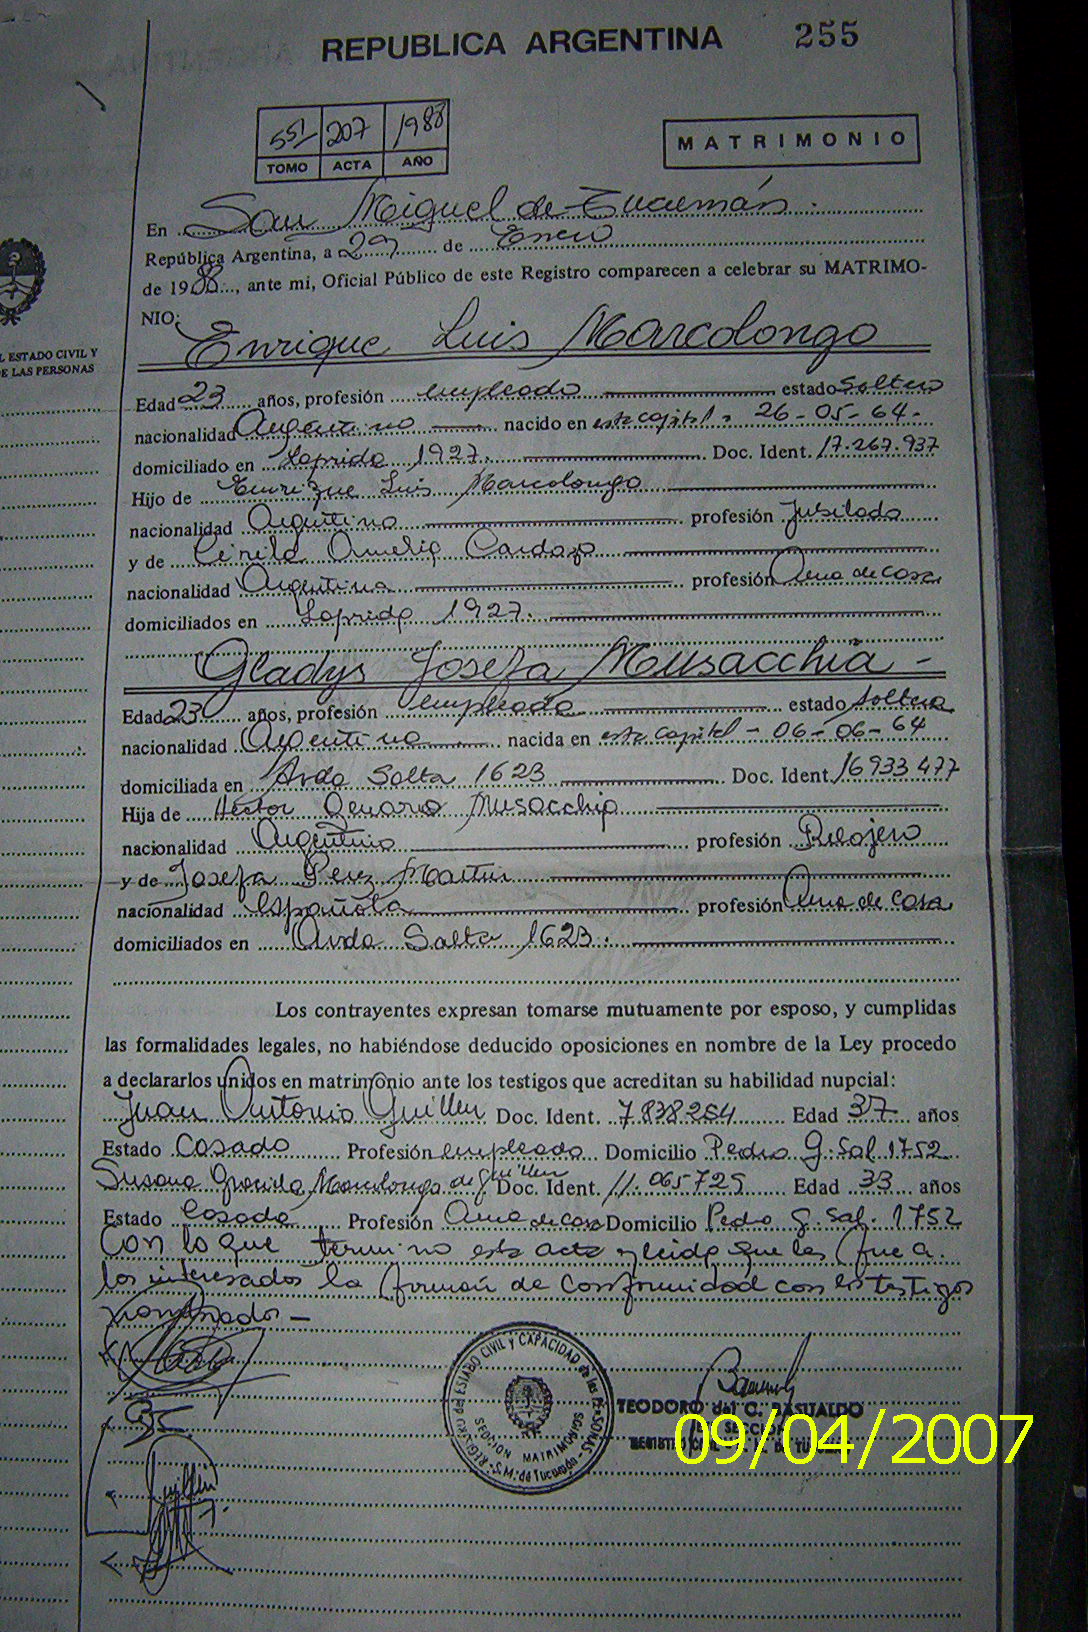 REPUBLICA ARGENTINA 255
551 207 1988
TOMO ACTA AÑO
MATRIMONIO
En San Miguel de Tucumán.
República Argentina, a 29 de Enero
de 1988, ante mi, Oficial Público de este Registro comparecen a celebrar su MATRIMO-
NIO:
Enrique Luis Marcolongo
L ESTADO CIVIL Y
E LAS PERSONAS
Edad 23 años, profesión empleado estado Soltero
nacionalidad Argentino nacido en esta capital - 26-05-64.
domiciliado en Laprida 1927. Doc. Ident. 17.267.937
Hijo de Enrique Luis Marcolongo
nacionalidad Argentino profesión Jubilado
y de Cirila Amelia Cardozo
nacionalidad Argentina profesión Ama de casa
domiciliados en Laprida 1927.
Gladys Josefa Musacchia -
Edad 23 años, profesión empleada estado Soltera
nacionalidad Argentina nacida en esta capital - 06-06-64
domiciliada en Avda Salta 1623 Doc. Ident. 16933477
Hija de Héctor Genaro Musacchia
nacionalidad Argentino profesión Relojero
y de Josefa Perez Martin
nacionalidad Española profesión Ama de casa
domiciliados en Avda Salta 1623.
Los contrayentes expresan tomarse mutuamente por esposo, y cumplidas
las formalidades legales, no habiéndose deducido oposiciones en nombre de la Ley procedo
a declararlos unidos en matrimonio ante los testigos que acreditan su habilidad nupcial:
Juan Antonio Guillen Doc. Ident. 7838264 Edad 37 años
Estado Casado Profesión empleado Domicilio Pedro G. Sal 1752
Susana Graciela Marcolongo de Guillen Doc. Ident. 11.065725 Edad 33 años
Estado Casada Profesión Ama de casa Domicilio Pedro G. Sal. 1752
Con lo que termino esta acta y leida que les fue a
los interesados la firman de conformidad con los testigos
nombrados -
REGISTRO del ESTADO CIVIL y CAPACIDAD de las PERSONAS
SECCION MATRIMONIOS
S.M. de Tucumán
TEODORO del C. BASUALDO
09/04/2007